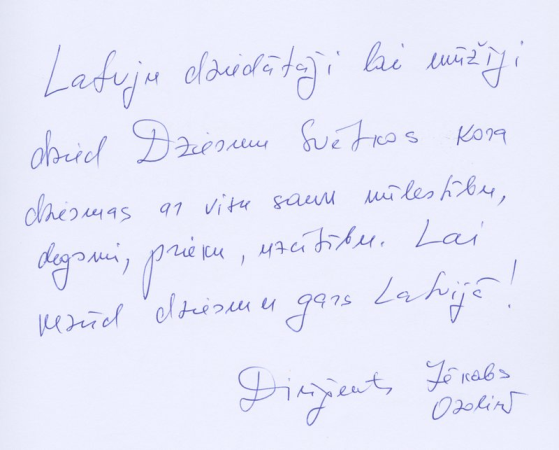 Latvju dziedātāji lai mūžīgi
dzied Dziesmu Svētkos kora
dziesmas ar visu savu mīlestību,
degsmi, prieku, uzticību. Lai
nezūd dziesmu gars Latvijā!
Diriģents Jēkabs
Ozoliņš